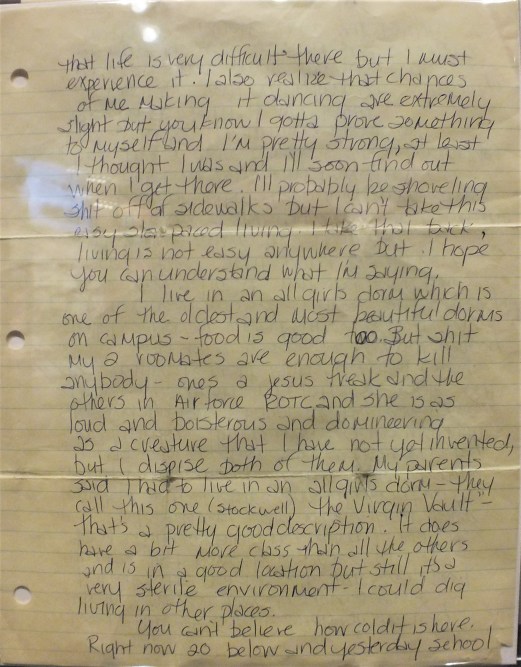 that life is very difficult there but I must
experience it. I also realize that chances
of me making it dancing are extremely
slight but you know I gotta prove something
to myself and I'm pretty strong, at least
I thought I was and I'll soon find out
when I get there. I'll probably be shoveling
shit off of sidewalks but I can't take this
easy slow paced living. I take that back,
living is not easy anywhere but. I hope
you can understand what I'm saying.
I live in an all girls dorm which is
one of the oldest and most beautiful dorms
on campus - food is good too. But shit
my 2 roomates are enough to kill
anybody - ones a jesus freak and the
others in Air force ROTC and she is as
loud and boisterous and domineering
as a creature that I have not yet invented,
but I dispise both of them. My parents
said I had to live in an all girls dorm - they
call this one (Stockwell) the "Virgin Vault" -
that's a pretty good description. It does
have a bit more class than all the others
and is in a good location but still its a
very sterile environment - I could dig
living in other places.
You can't believe how cold it is here.
Right now 20 below and yesterday school